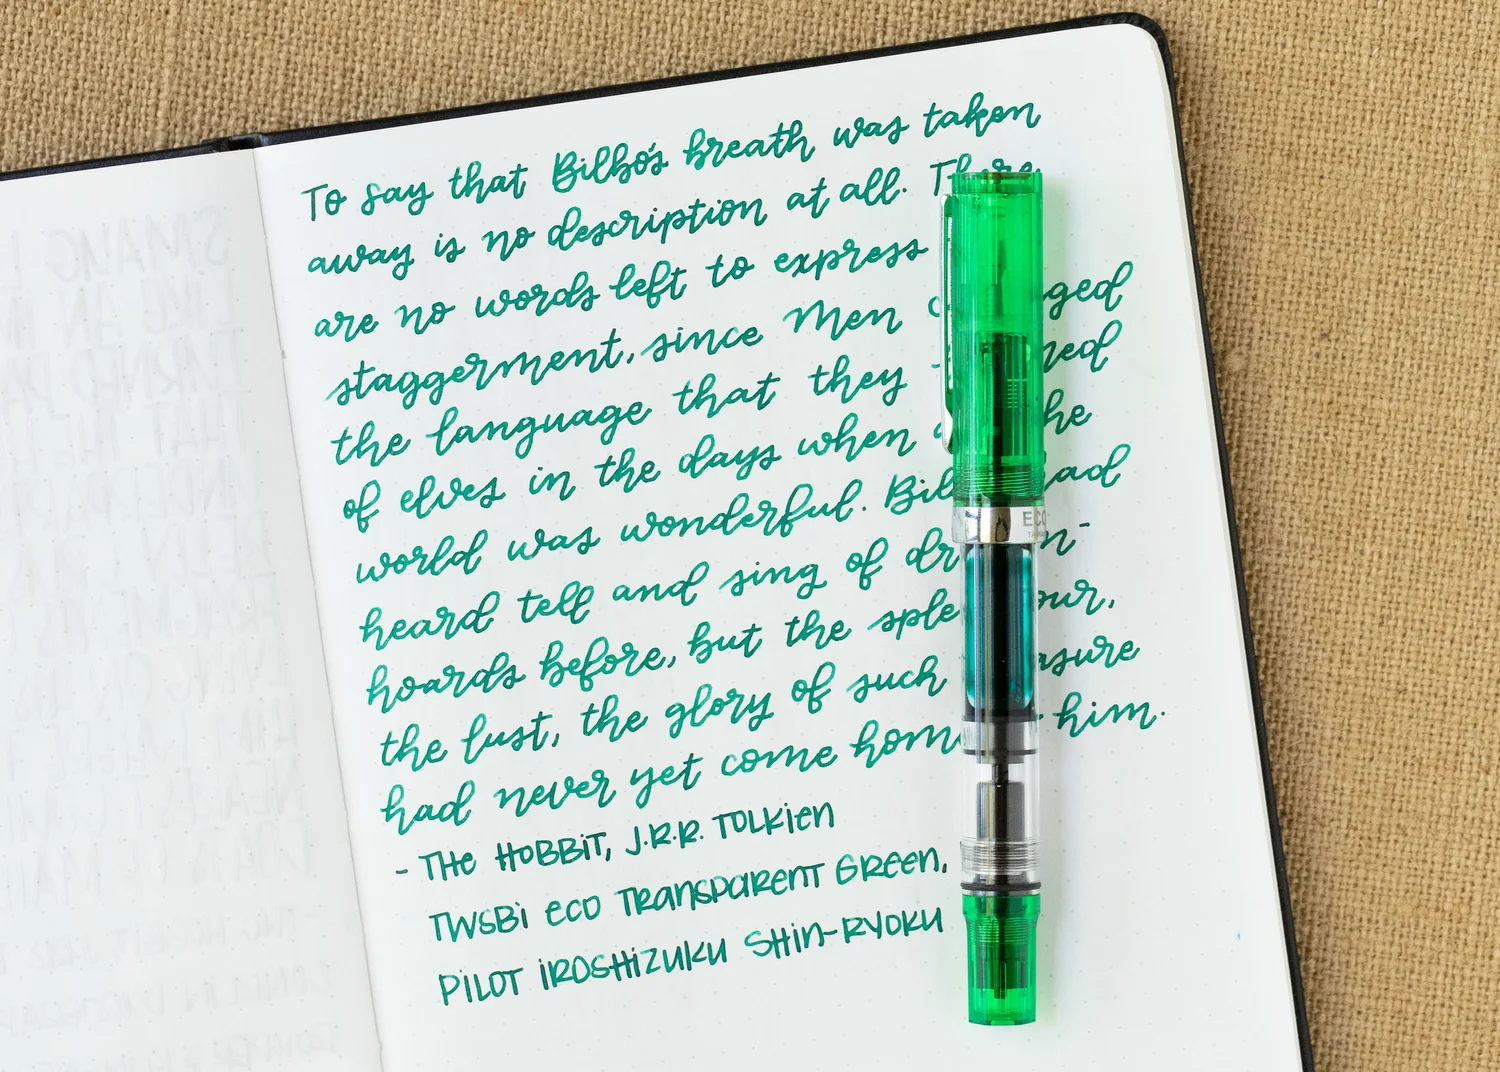 To say that Bilbo's breath was taken
away is no description at all. There
are no words left to express
staggerment, since Men
the language that they
of elves in the days when
world was wonderful. had
heard tell and sing of
hoards before, but the
the lust, the glory of such
had never yet come home him.
- THE HOBBIT, J.R.R. TOLKIEN
TWSBI ECO TRANSPARENT GREEN,
PILOT IROSHIZUKU SHIN-RYOKU
ECO